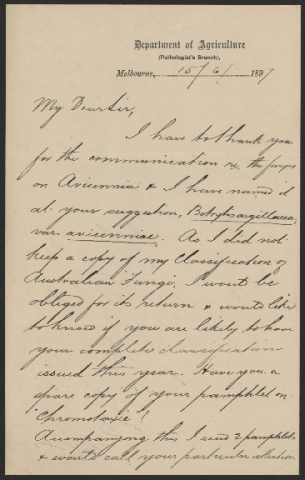 Department of Agriculture
(Pathologist's Branch),
Melbourne, 15/6/1897
My Dear Sir,
I have to thank you
for the communication re the fungus
on Avicennia & I have named it
at your suggestion, Botrytis argillacea,
var. avicenniae. As I did not
keep a copy of my Classification of
Australian Fungi, I would be
obliged for its return & would like
to know if you are likely to have
your complete classification
issued this year. Have you a
spare copy of your pamphlet on
"Chromotaxie"?
Accompanying this I send 2 pamphlets
& would call your particular attention